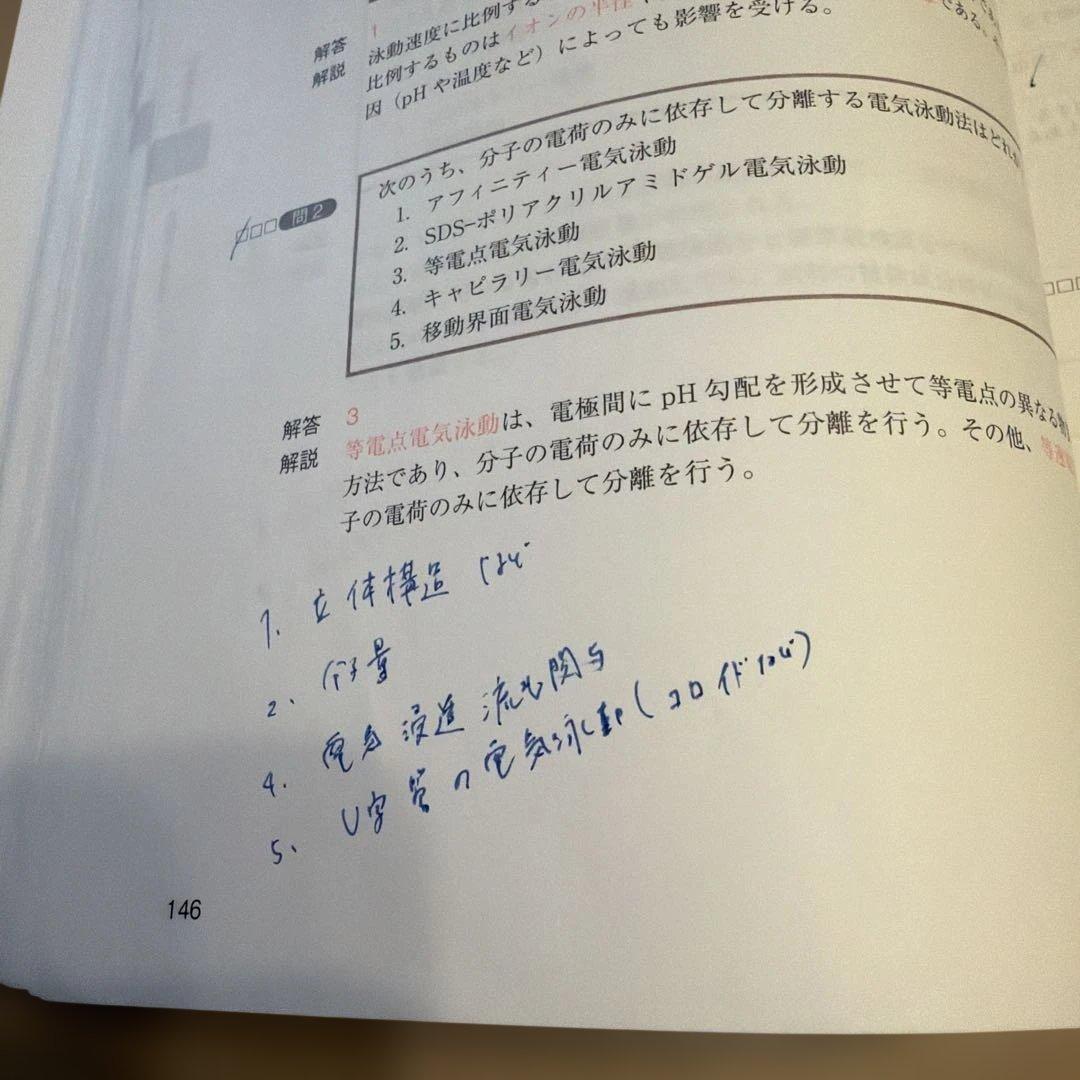 解答 1
解説 泳動速度に比例する
比例するものはイオンの半径 である。
因（pHや温度など）によっても影響を受ける。
問2
次のうち、分子の電荷のみに依存して分離する電気泳動法はどれ
1. アフィニティー電気泳動
2. SDS-ポリアクリルアミドゲル電気泳動
3. 等電点電気泳動
4. キャピラリー電気泳動
5. 移動界面電気泳動
解答 3
解説 等電点電気泳動は、電極間に pH 勾配を形成させて等電点の異なる
方法であり、分子の電荷のみに依存して分離を行う。その他、等速
子の電荷のみに依存して分離を行う。
1. 立体構造 など
2. 分子量
4. 電気浸透流も関与
5. U字管の電気泳動(コロイドなど)
146